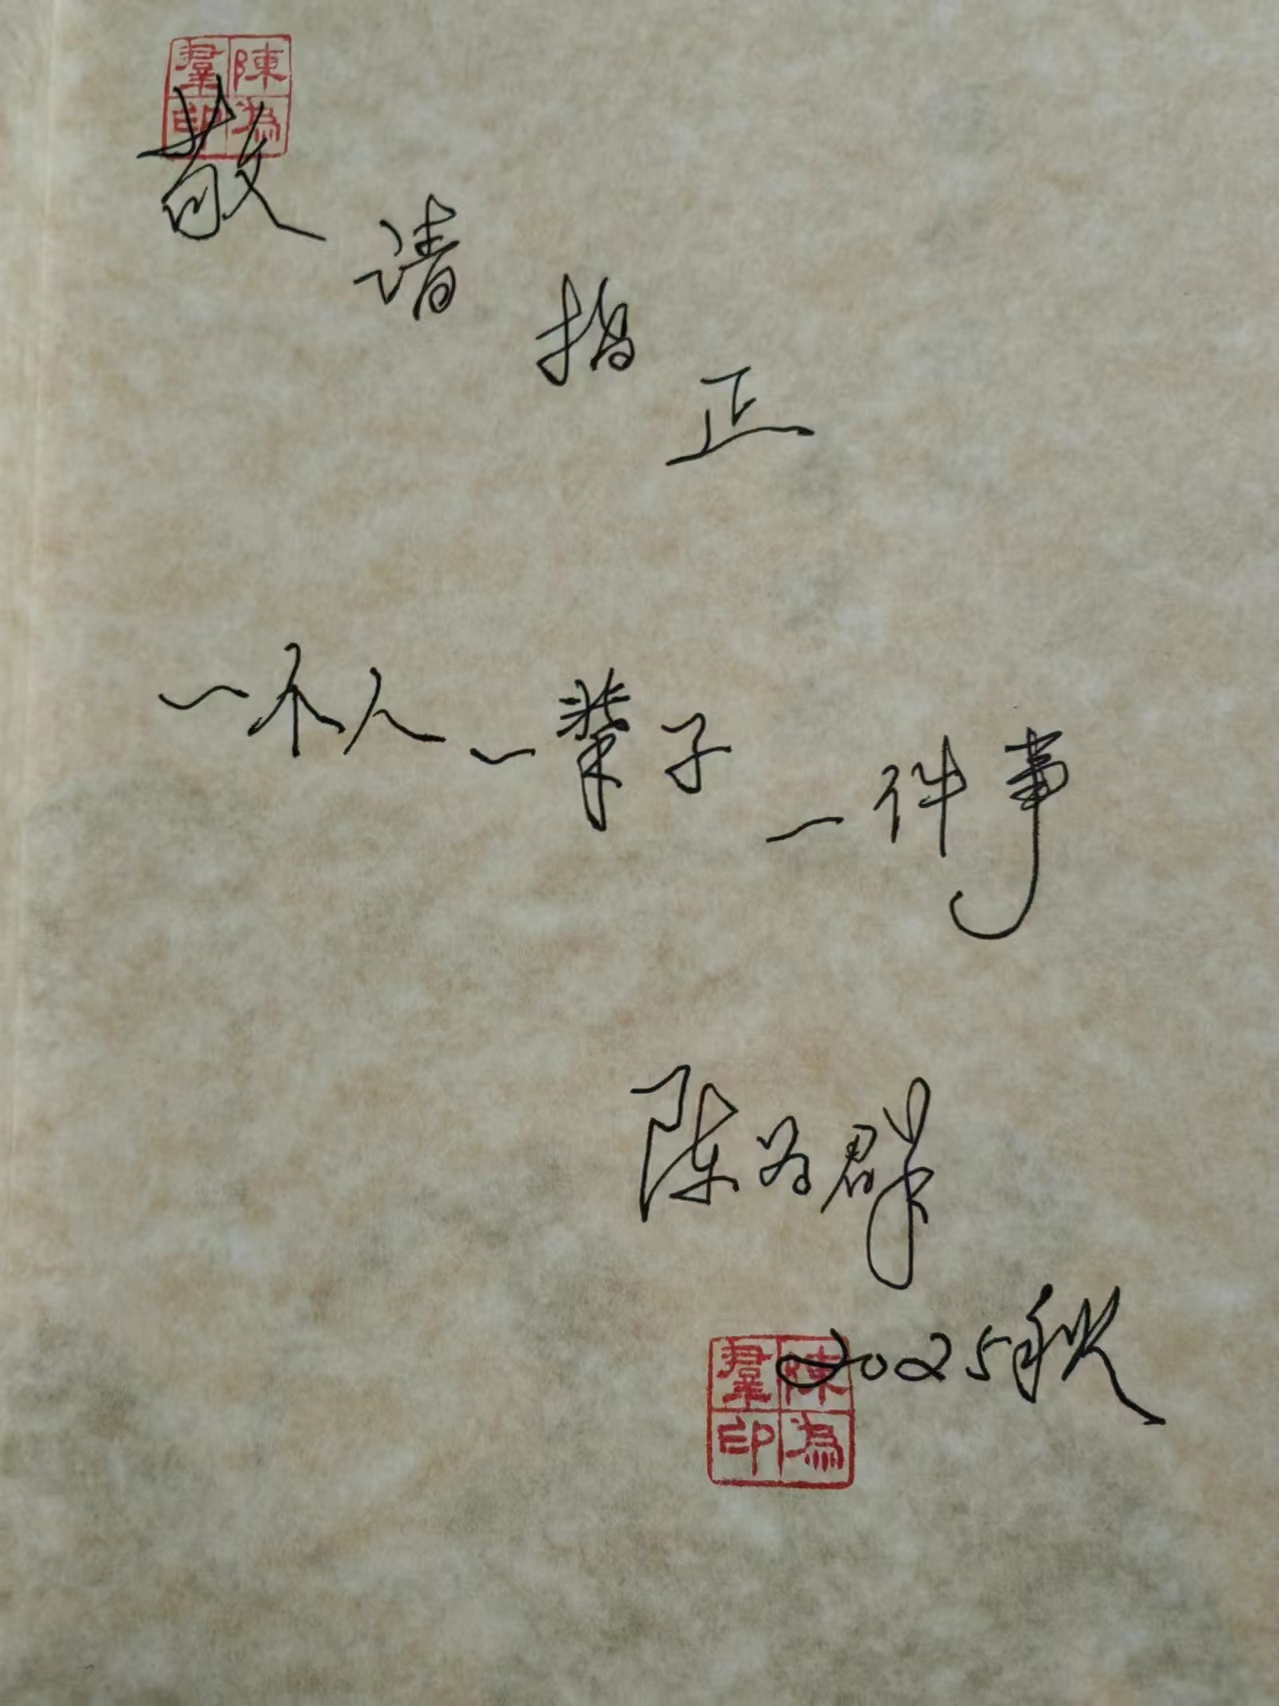 陳為羣印
敬请指正
一个人一辈子一件事
陈为群
2025秋
陳為羣印